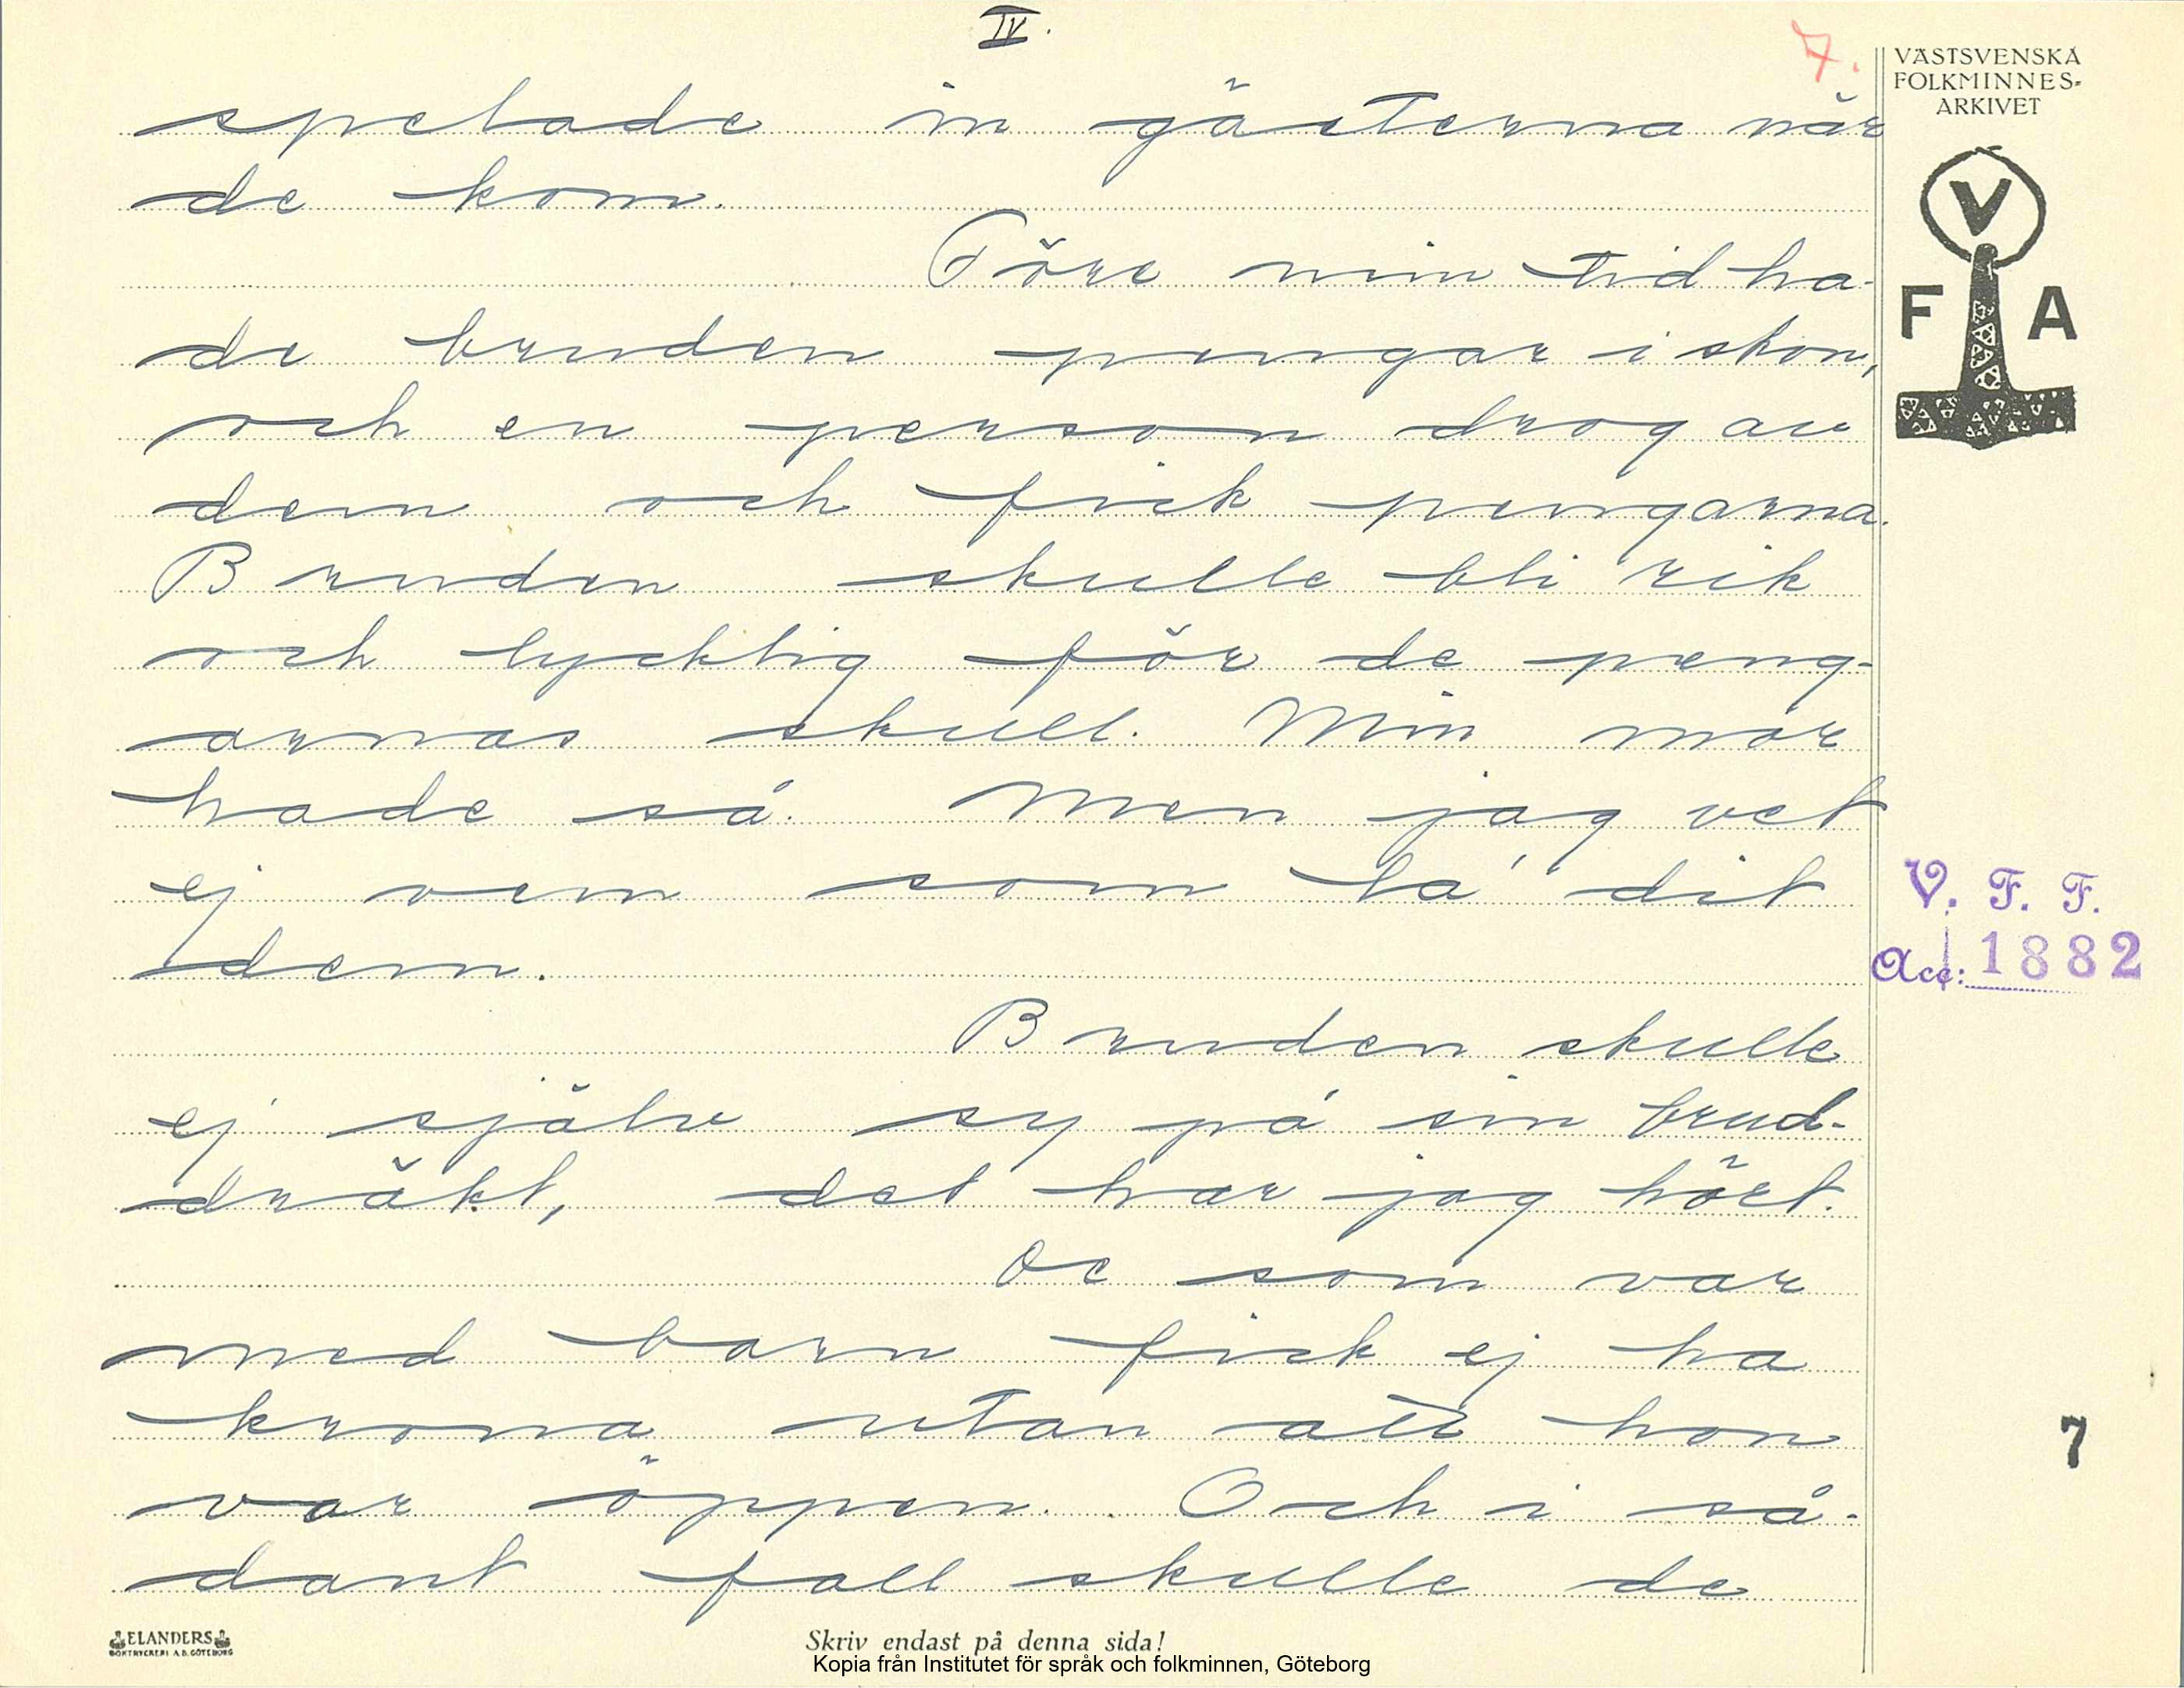 IV.
7.
VÄSTSVENSKA
FOLKMINNES-
ARKIVET
V
F A
spelade in gästerna när
de kom.
Före min tid ha-
de bruden pengar i skon,
och en person drog av
dem och fick pengarna.
Bruden skulle bli rik
och lycklig för de peng-
arnas skull. Min mor
hade så. Men jag vet
ej vem som la' dit
dem.
V. F. F.
Acc: 1882
Bruden skulle
ej själv sy på sin brud-
dräkt, det har jag hört.
De som var
med barn fick ej ha
krona utan att hon
var öppen. Och i så-
dant fall skulle de
7
ELANDERS
BOKTRYCKERI A.B. GÖTEBORG
Skriv endast på denna sida!
Kopia från Institutet för språk och folkminnen, Göteborg